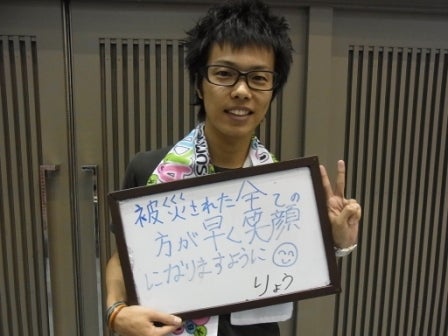 被災された全ての
方が早く笑顔
になりますように
りょう